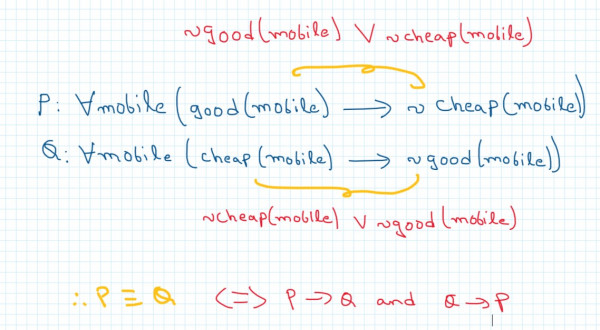 ~good(mobile) ∨ ~cheap(mobile)
P: ∀mobile(good(mobile) → ~cheap(mobile))
Q: ∀mobile(cheap(mobile) → ~good(mobile))
~cheap(mobile) ∨ ~good(mobile)
∴ P ≡ Q <=> P → Q and Q → P